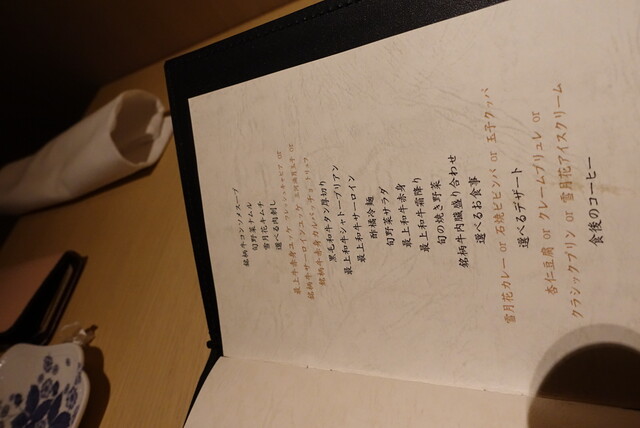 銘柄牛コンソメスープ
旬野菜ナムル
雪月花キムチ
選べる肉刺し
最上牛赤身ユッケ フレッシュキャビア or
銘柄牛サーロインユッケ 三河南月玉子 or
銘柄牛赤身カルパッチョ トリュフ
黒毛和牛タン厚切り
最上和牛シャトーブリアン
最上和牛サーロイン
酢橘冷麺
旬野菜サラダ
最上和牛赤身
最上和牛霜降り
旬の焼き野菜
銘柄牛内臓盛り合わせ
選べるお食事
雪月花カレー or 石焼ビビンバ or 玉子クッパ
選べるデザート
杏仁豆腐 or クレームブリュレ or
クラシックプリン or 雪月花アイスクリーム
食後のコーヒー